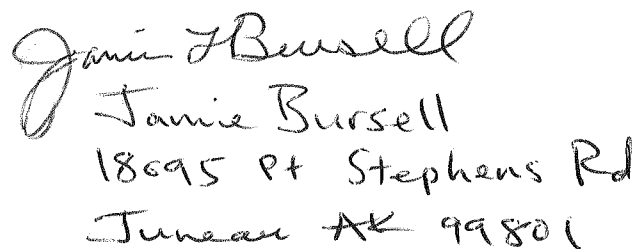 Jamie L Bursell
Jamie Bursell
18695 Pt Stephens Rd
Juneau AK 99801